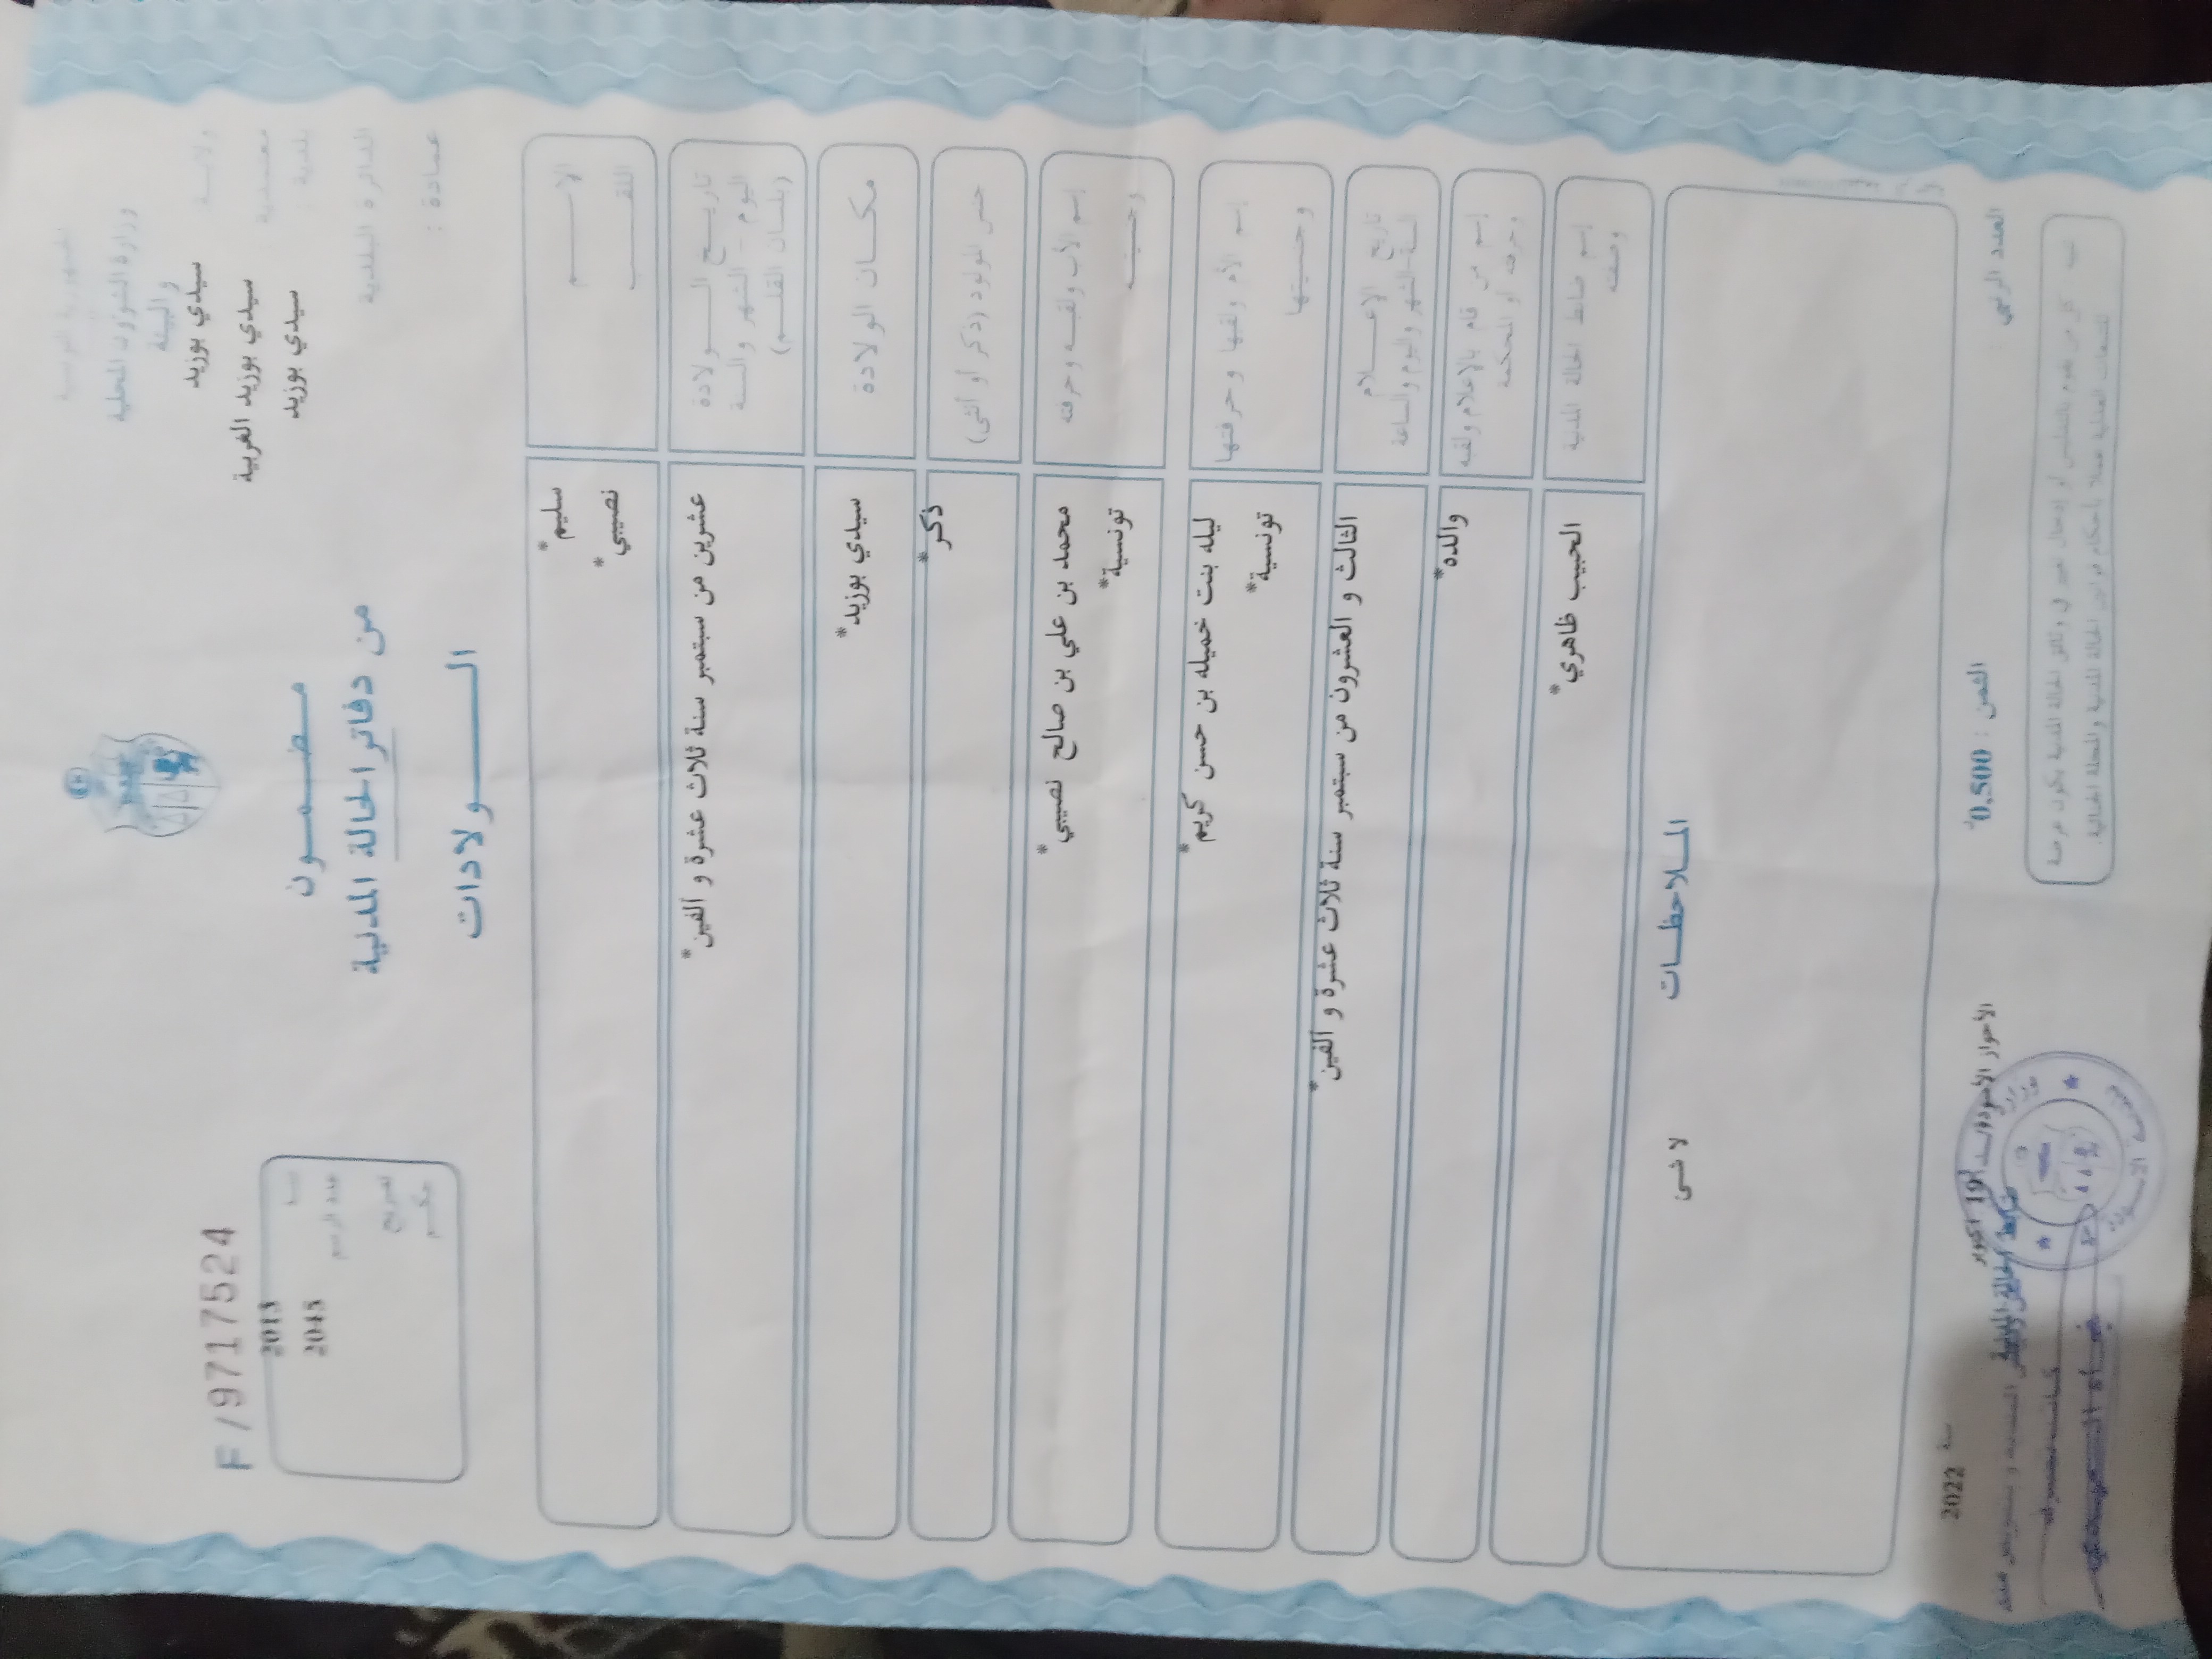 الجمهورية التونسية
وزارة الشؤون المحلية
والبيئة
ولاية سيدي بوزيد
معتمدية سيدي بوزيد الغربية
بلدية سيدي بوزيد
الدائرة البلدية
عمادة :
مضمون
من دفاتر الحالة المدنية
الولادات
F/9717524
2013
عدد الرسم 2045
تصريح
حكم
الاسم سليم*
اللقب نصيبي*
تاريخ الولادة عشرين من سبتمبر سنة ثلاث عشرة و ألفين*
اليوم - الشهر والسنة
(بلسان القلم)
مكان الولادة سيدي بوزيد*
جنس المولود (ذكر أو أنثى) ذكر*
إسم الأب ولقبه وحرفته محمد بن علي بن صالح نصيبي*
وجنسيته تونسية*
إسم الأم ولقبها وحرفتها ليله بنت خميله بن حسن كريم*
وجنسيتها تونسية*
تاريخ الإعلام الثالث و العشرون من سبتمبر سنة ثلاث عشرة و ألفين*
السنة والشهر واليوم والساعة
إسم من قام بالإعلام ولقبه والده*
وحرفته أو المحكمة
إسم ضابط الحالة المدنية الحبيب ظاهري*
وصفته
الملاحظات
لا شئ
العدد الرتبي
الثمن : 0,500
الأحواز الأسودة في 19 أكتوبر
سنة 2022
ضابط الحالة المدنية